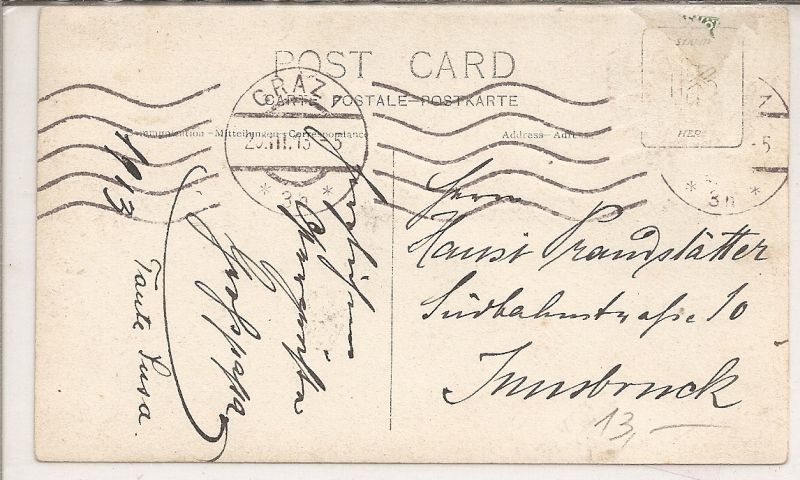 POST CARD
CARTE POSTALE-POSTKARTE
Communication - Mitteilungen - Correspondance
Address - Adresse
STAMP
HERE
GRAZ
III.13-5
* 3n *
-5
* 3n *
Herrn
Hansi Prandstätter
Südbahnstraße 10
Innsbruck
13,—
Großpapa
Tante Susa.
1913